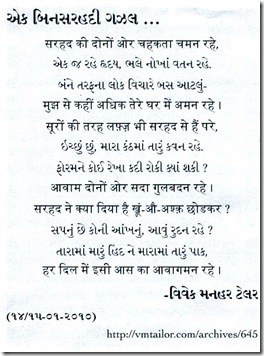 એક બિનસરહદી ગઝલ ...
सरहद की दोनों ओर चहकता चमन रहे,
એક જ રહે હૃદય, ભલે નોખાં વતન રહે.
બંને તરફના લોક વિચારે બસ આટલું-
मुझ से कहीं अधिक तेरे घर में अमन रहे ।
सूरों की तरह लफ़्ज़ भी सरहद में हैं परे,
ઇચ્છું છું, મારા કંઠમાં તારું કવન રહે.
ફોરમને કોઈ રેખા કદી રોકી ક્યાં શકી ?
आवाम दोनों ओर सदा गुलबदन रहे ।
सरहद ने क्या दिया है खूं-औ-अश्क़ छोडकर ?
સપનું છે કોની આંખનું, આવું રુદન રહે ?
તારામાં મારું હિંદ ને મારામાં તારું પાક,
हर दिल में इसी आस का आवागमन रहे ।
-વિવેક મનહર ટેલર
(૧૪/૧૫-૦૧-૨૦૧૦)
http://vmtailor.com/archives/645